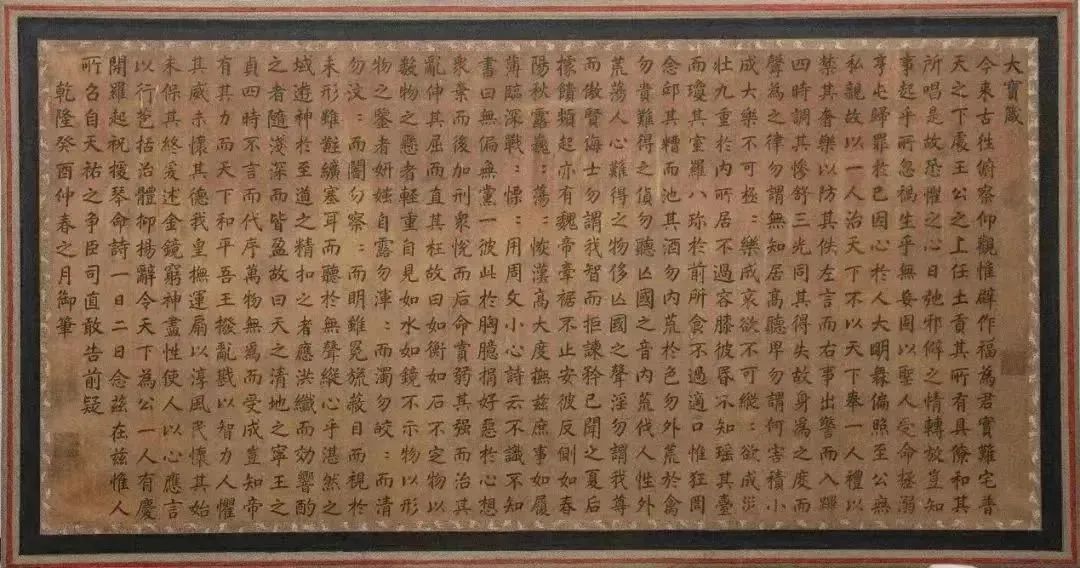 大寶箴
今來古往俯察仰觀惟辟作福為君實難宅普
天之下處王公之上任土貢其所有具僚和其
所唱是故恐懼之心日弛邪僻之情轉放豈知
事起乎所忽禍生乎無妄固以聖人受命拯溺
亨屯歸罪於己因心於人大明無偏照至公無
私親故以一人治天下不以天下奉一人禮以
禁其奢樂以防其佚左言而右事出警而入蹕
四時調其慘舒三光同其得失故身為之度而
聲為之律勿謂無知居高聽卑勿謂何害積小
成大樂不可極:樂成哀欲不可縱:欲成災
壯九重於內所居不過容膝彼昏不知瑤其臺
而瓊其室羅八珍於前所食不過適口惟狂罔
念邱其糟而池其酒勿內荒於色勿外荒於禽
勿貴難得之貨勿聽亡國之音內荒伐人性外
荒蕩人心難得之物侈亡國之聲淫勿謂我尊
而傲賢侮士勿謂我智而拒諫矜己聞之夏后
據饋頻起亦有魏帝牽裾不止安彼反側如春
陽秋露巍:蕩:恢漢高大度撫茲庶事如履
薄臨深戰:慄:用周文小心詩云不識不知
書曰無偏無黨一彼此於胸臆捐好惡於心想
眾棄而後加刑眾悅而后命賞弱其强而治其
亂伸其屈而直其枉故曰如衡如石不定物以
數物之懸者輕重自見如水如鏡不示物以形
物之鑒者妍媸自露勿渾:而濁勿皎:而清
勿汶:而闇勿察:而明雖冕旒蔽目而視於
未形雖黈纊塞耳而聽於無聲縱心乎湛然之
域遊神於至道之精扣之者應洪纖而効響酌
之者隨淺深而皆盈故曰天之清地之寧王之
貞四時不言而代序萬物無為而受成豈知帝
有其力而天下和平吾王撥亂戡以智力人懼
其威未懷其德我皇撫運扇以淳風民懷其始
未保其終爰述金鏡窮神盡性使人以心應言
以行苞括治體抑揚辭令天下為公一人有慶
開羅起祝援琴命詩一日二日念茲在茲惟人
所召自天祐之爭臣司直敢告前疑
乾隆癸酉仲春之月御筆